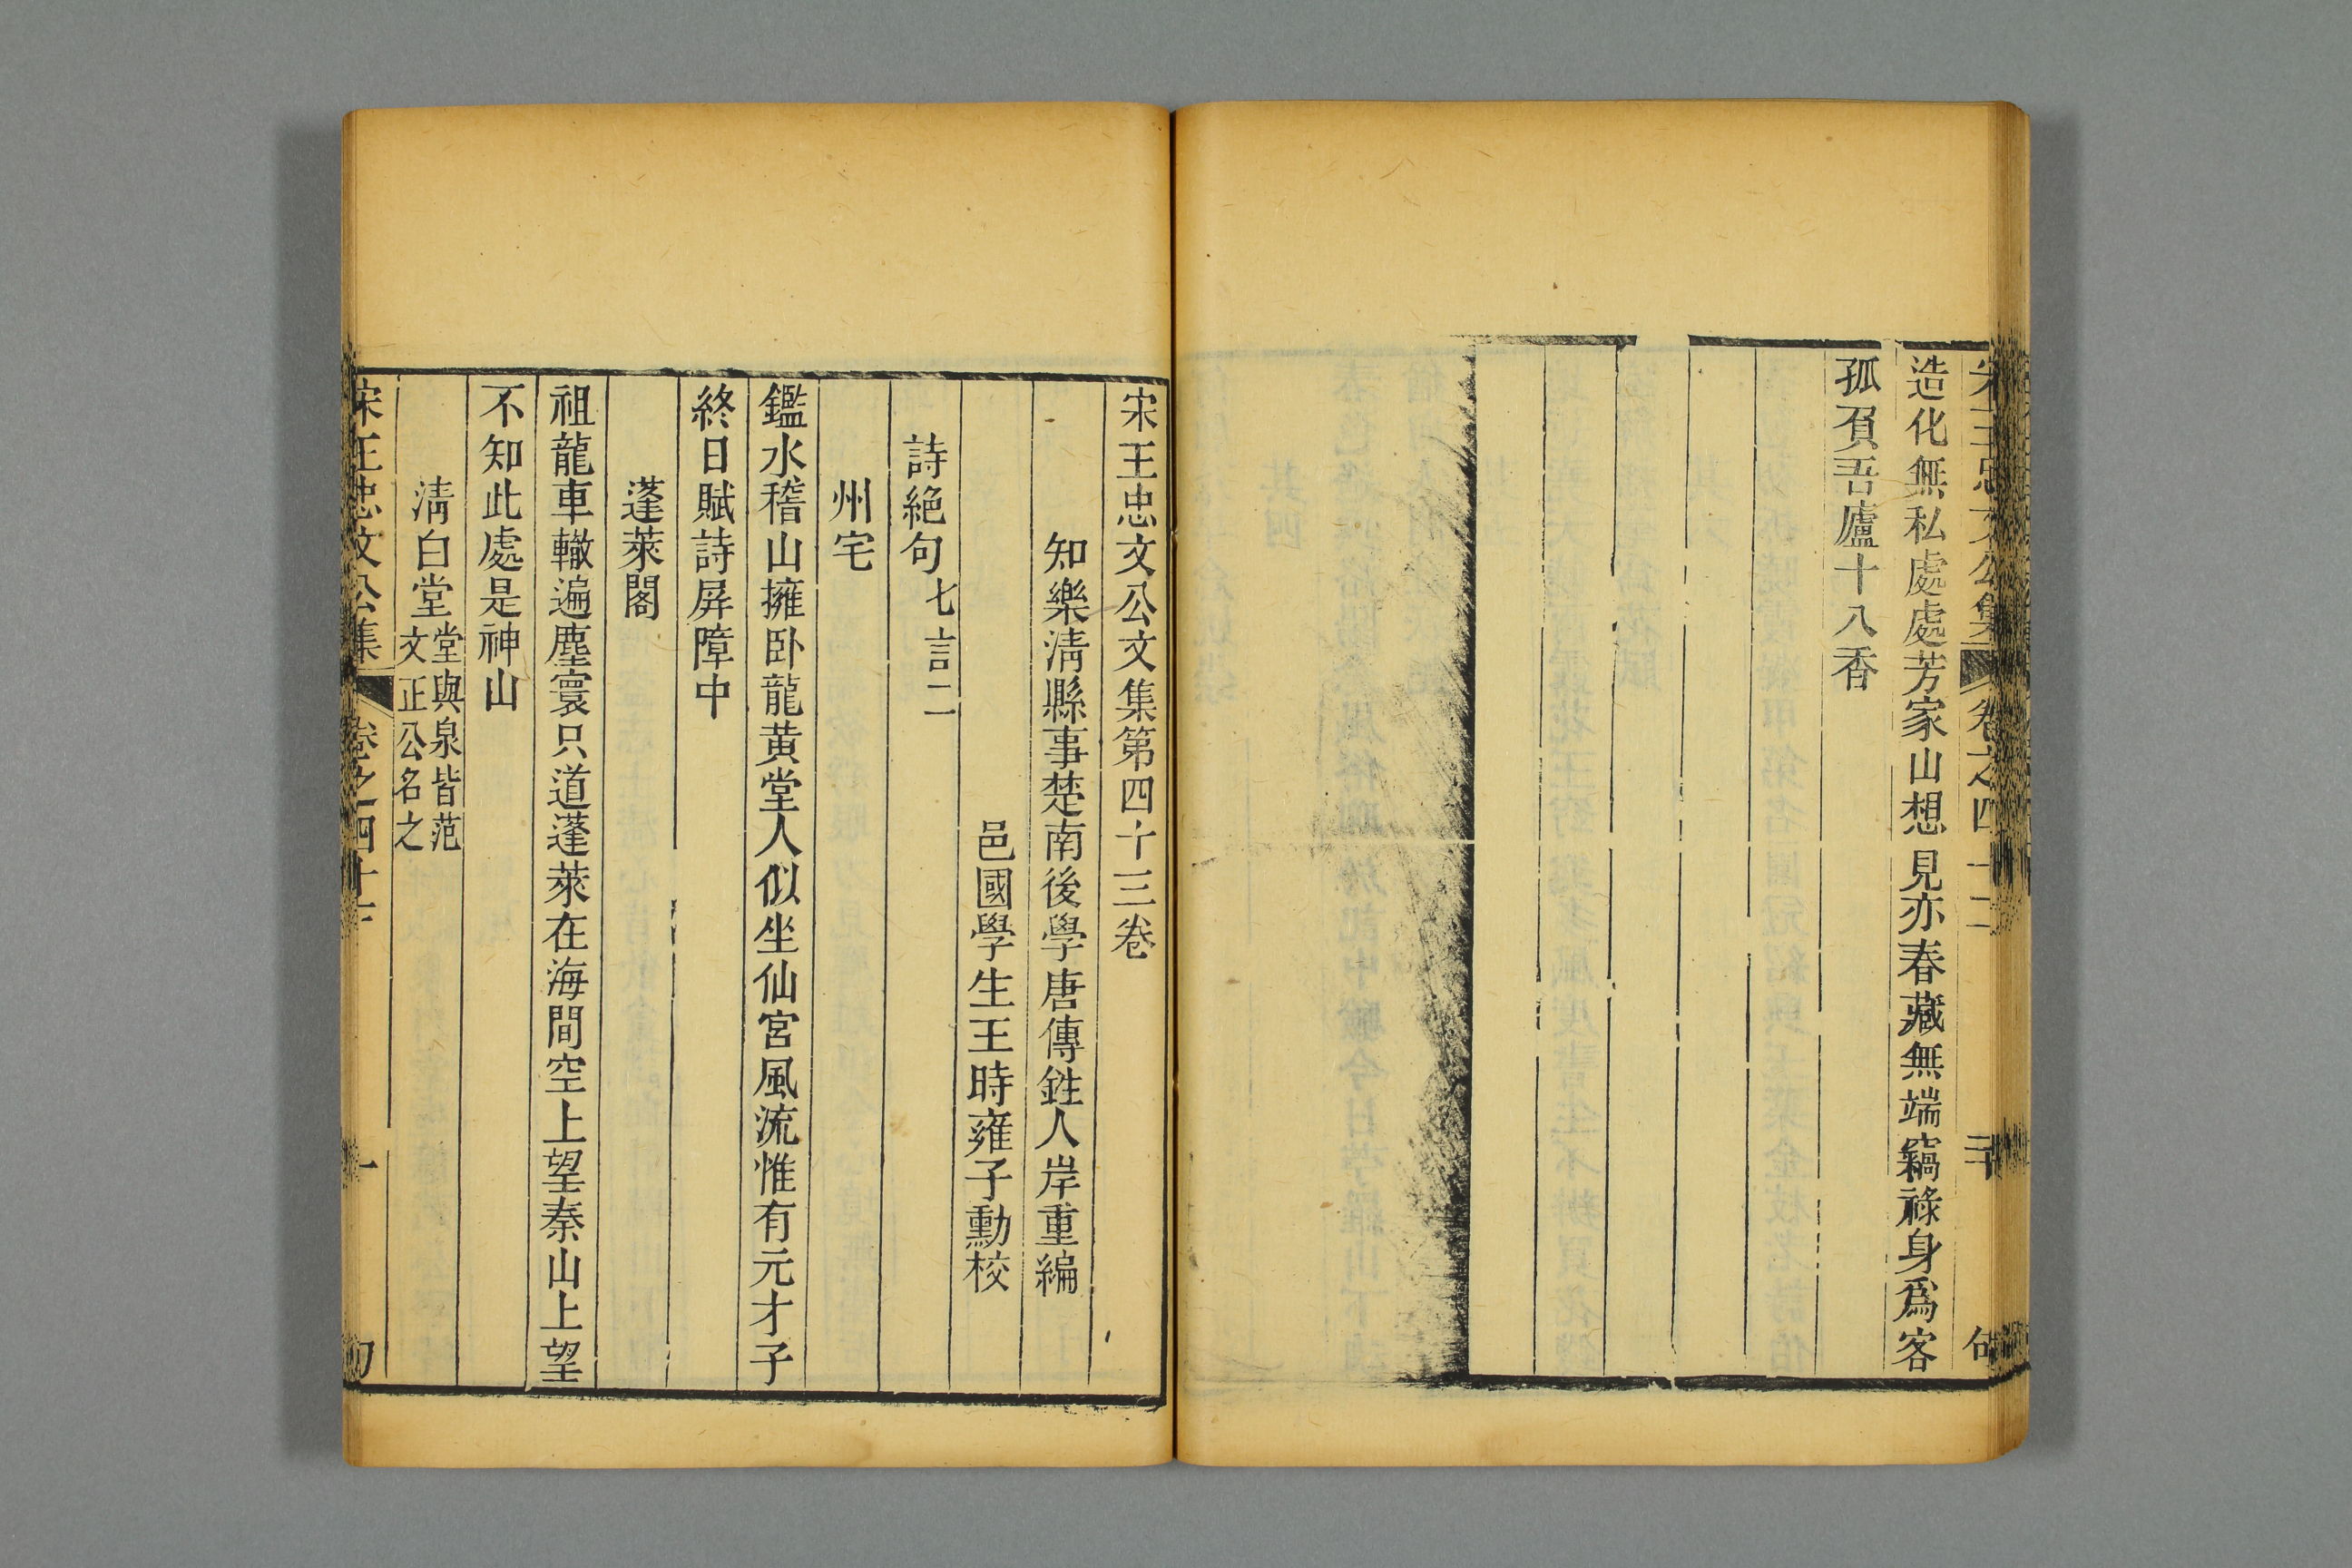 宋王忠文公集 卷之四十二
造化無私處處芳家山想見亦春藏無端竊祿身爲客
孤負吾廬十八香
宋王忠文公文集第四十三卷
知樂淸縣事楚南後學唐傳鉎人岸重編
邑國學生王時雍子勳校
詩絕句七言二
州宅
鑑水稽山擁卧龍黄堂人似坐仙宮風流惟有元才子
終日賦詩屛障中
蓬萊閣
祖龍車轍遍塵寰只道蓬萊在海間空上望秦山上望
不知此處是神山
淸白堂堂與泉皆范
文正公名之
宋王忠文公集 卷之四十三 一